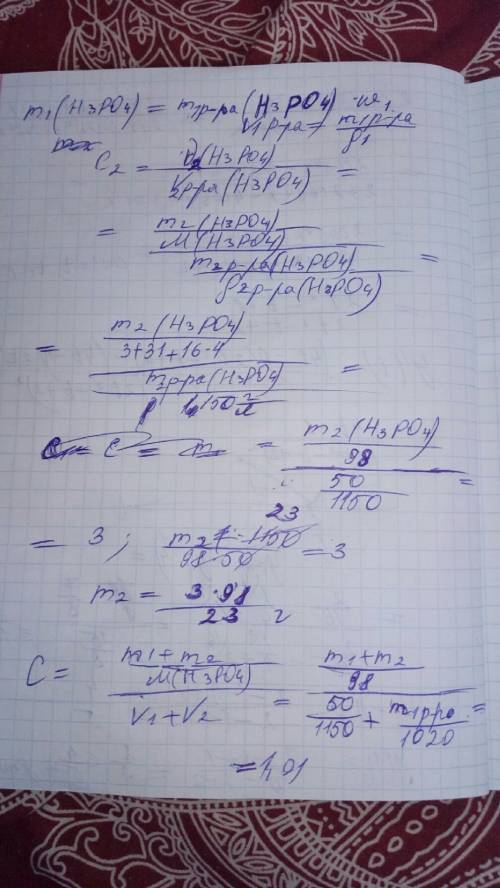 m₁(H₃PO₄) = m₁р-ра(H₃PO₄) · ω₁
V₁р-ра = m₁р-ра / ρ₁
C₂ = ν₂(H₃PO₄) / V₂р-ра(H₃PO₄) =
= (m₂(H₃PO₄) / M(H₃PO₄)) / (m₂р-ра(H₃PO₄) / ρ₂р-ра(H₃PO₄)) =
= (m₂(H₃PO₄) / 3+31+16·4) / (m₂р-ра(H₃PO₄) / 1150 г/л) =
= (m₂(H₃PO₄) / 98) / (50 / 1150) =
23
= 3 ; m₂ · 1150 / 98·50 = 3
m₂ = 3·98 / 23 г
C = (m₁+m₂ / M(H₃PO₄)) / (V₁+V₂) = (m₁+m₂ / 98) / (50 / 1150 + m₁р-ра / 1020) =
= 1,01